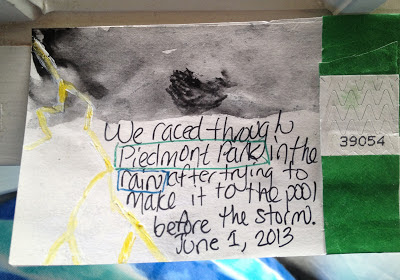 We raced through
Piedmont Park in the
rain after trying to
make it to the pool
before the storm.
June 1, 2013
39054